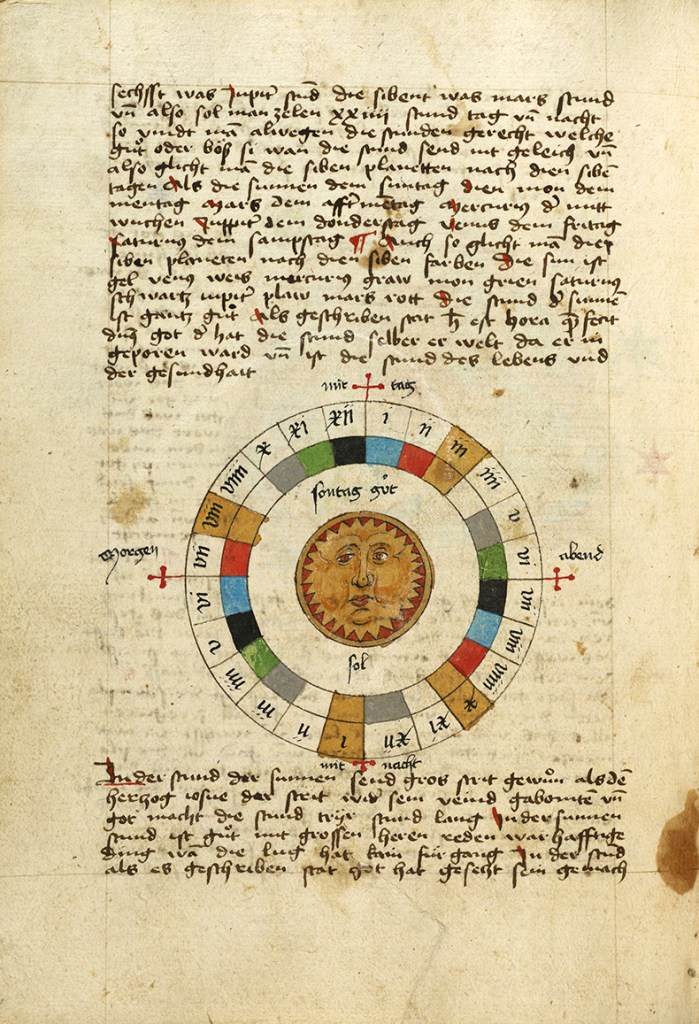 sechsst was Jupit̄ stūd die sibent was mars stund
vn̄ also sol man zelen xxiiii stund tag vn̄ nacht
so vindt mā alwegen die stunden gerecht welche
gůt oder bös si wan die stund send nit geleich vn̄
also glicht mā die siben planetten nach dien sibē
tagen Als die sunnen dem suntag dien mon dem
mentag Mars dem afft̄metag Mercurius d̄ mitt
wuchen Juppit̄ dem donderstag Venus dem fritag
Saturnus dem sampstag ¶ Auch so glicht mā dieß
siben planeten nach dien siben farben Die sun ist
gel venus weis mercurius graw mon grien saturnus
schwartz iupit̄ plaw mars rott die stund d̄ sunnē
ist gantz gůt Als geschriben stat h̄ est hora
got d̄ hat die stund selber er welt da er in
geporen ward vn̄ ist die stund des lebens vnd
der gesundhait
mit tag
xii i ii iii iiii v vi vii viii viiii x xi xii i ii iii iiii v vi vii viii viiii x xi
Sontag gůt
Morgen
abend
sol
mit nacht
In der stund der sunnen send gros strit gewūn als dē
herzog iosue der streit wid̄ sein veind gabomten vn̄
got macht die stund trÿr stund lang In der sunnen
stund ist gůt mit grossen heren reden warhafftige
ding wā die lug hat kain für gang In der stūd
als es geschriben stat got hat gesetzt sein gemach